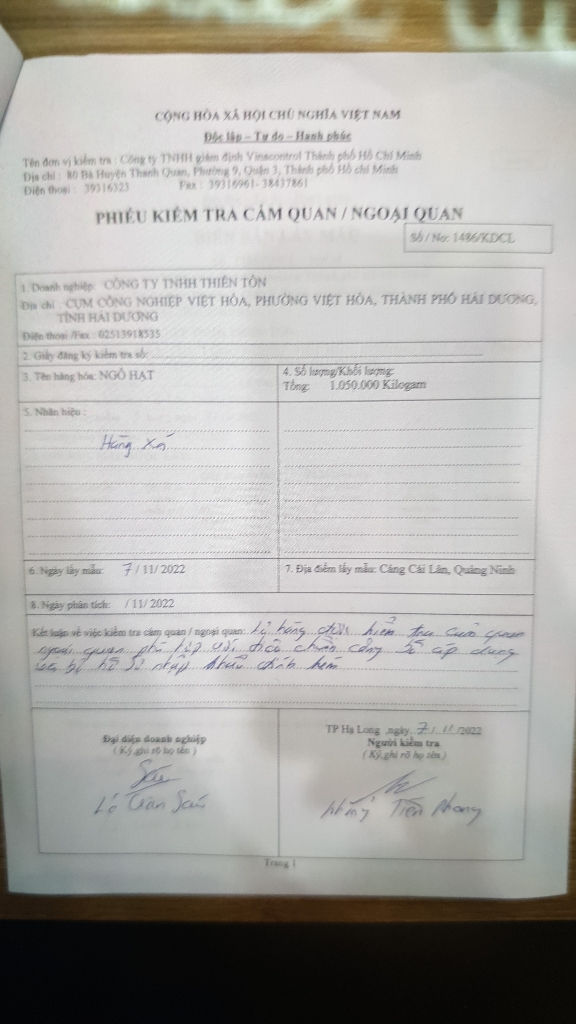 CỘNG HÒA XÃ HỘI CHỦ NGHĨA VIỆT NAM
Độc lập – Tự do – Hạnh phúc
Tên đơn vị kiểm tra : Công ty TNHH giám định Vinacontrol Thành phố Hồ Chí Minh
Địa chỉ : 80 Bà Huyện Thanh Quan, Phường 9, Quận 3, Thành phố Hồ chí Minh
Điện thoại : 39316323 Fax : 39316961- 38437861
PHIẾU KIỂM TRA CẢM QUAN / NGOẠI QUAN
Số / No: 1486/KDCL
1. Doanh nghiệp: CÔNG TY TNHH THIÊN TÔN
Địa chỉ : CỤM CÔNG NGHIỆP VIỆT HÒA, PHƯỜNG VIỆT HÒA, THÀNH PHỐ HẢI DƯƠNG,
TỈNH HẢI DƯƠNG
Điện thoại /Fax : 02513918535
2. Giấy đăng ký kiểm tra số:
3. Tên hàng hóa: NGÔ HẠT
4. Số lượng/Khối lượng:
Tổng: 1.050.000 Kilogam
5. Nhãn hiệu :
Hàng xá
6. Ngày lấy mẫu: 7/11/ 2022
7. Địa điểm lấy mẫu: Cảng Cái Lân, Quảng Ninh
8. Ngày phân tích: /11/ 2022
Kết luận về việc kiểm tra cảm quan / ngoại quan: Lô hàng được kiểm tra cảm quan
ngoại quan phù hợp với tiêu chuẩn công bố áp dụng
hồ sơ nhập khẩu đính kèm
Đại diện doanh nghiệp
( Ký,ghi rõ họ tên )
TP Hạ Long ,ngày 7/11/2022
Người kiểm tra
( Ký,ghi rõ họ tên )
Tiến Phong
Trang 1